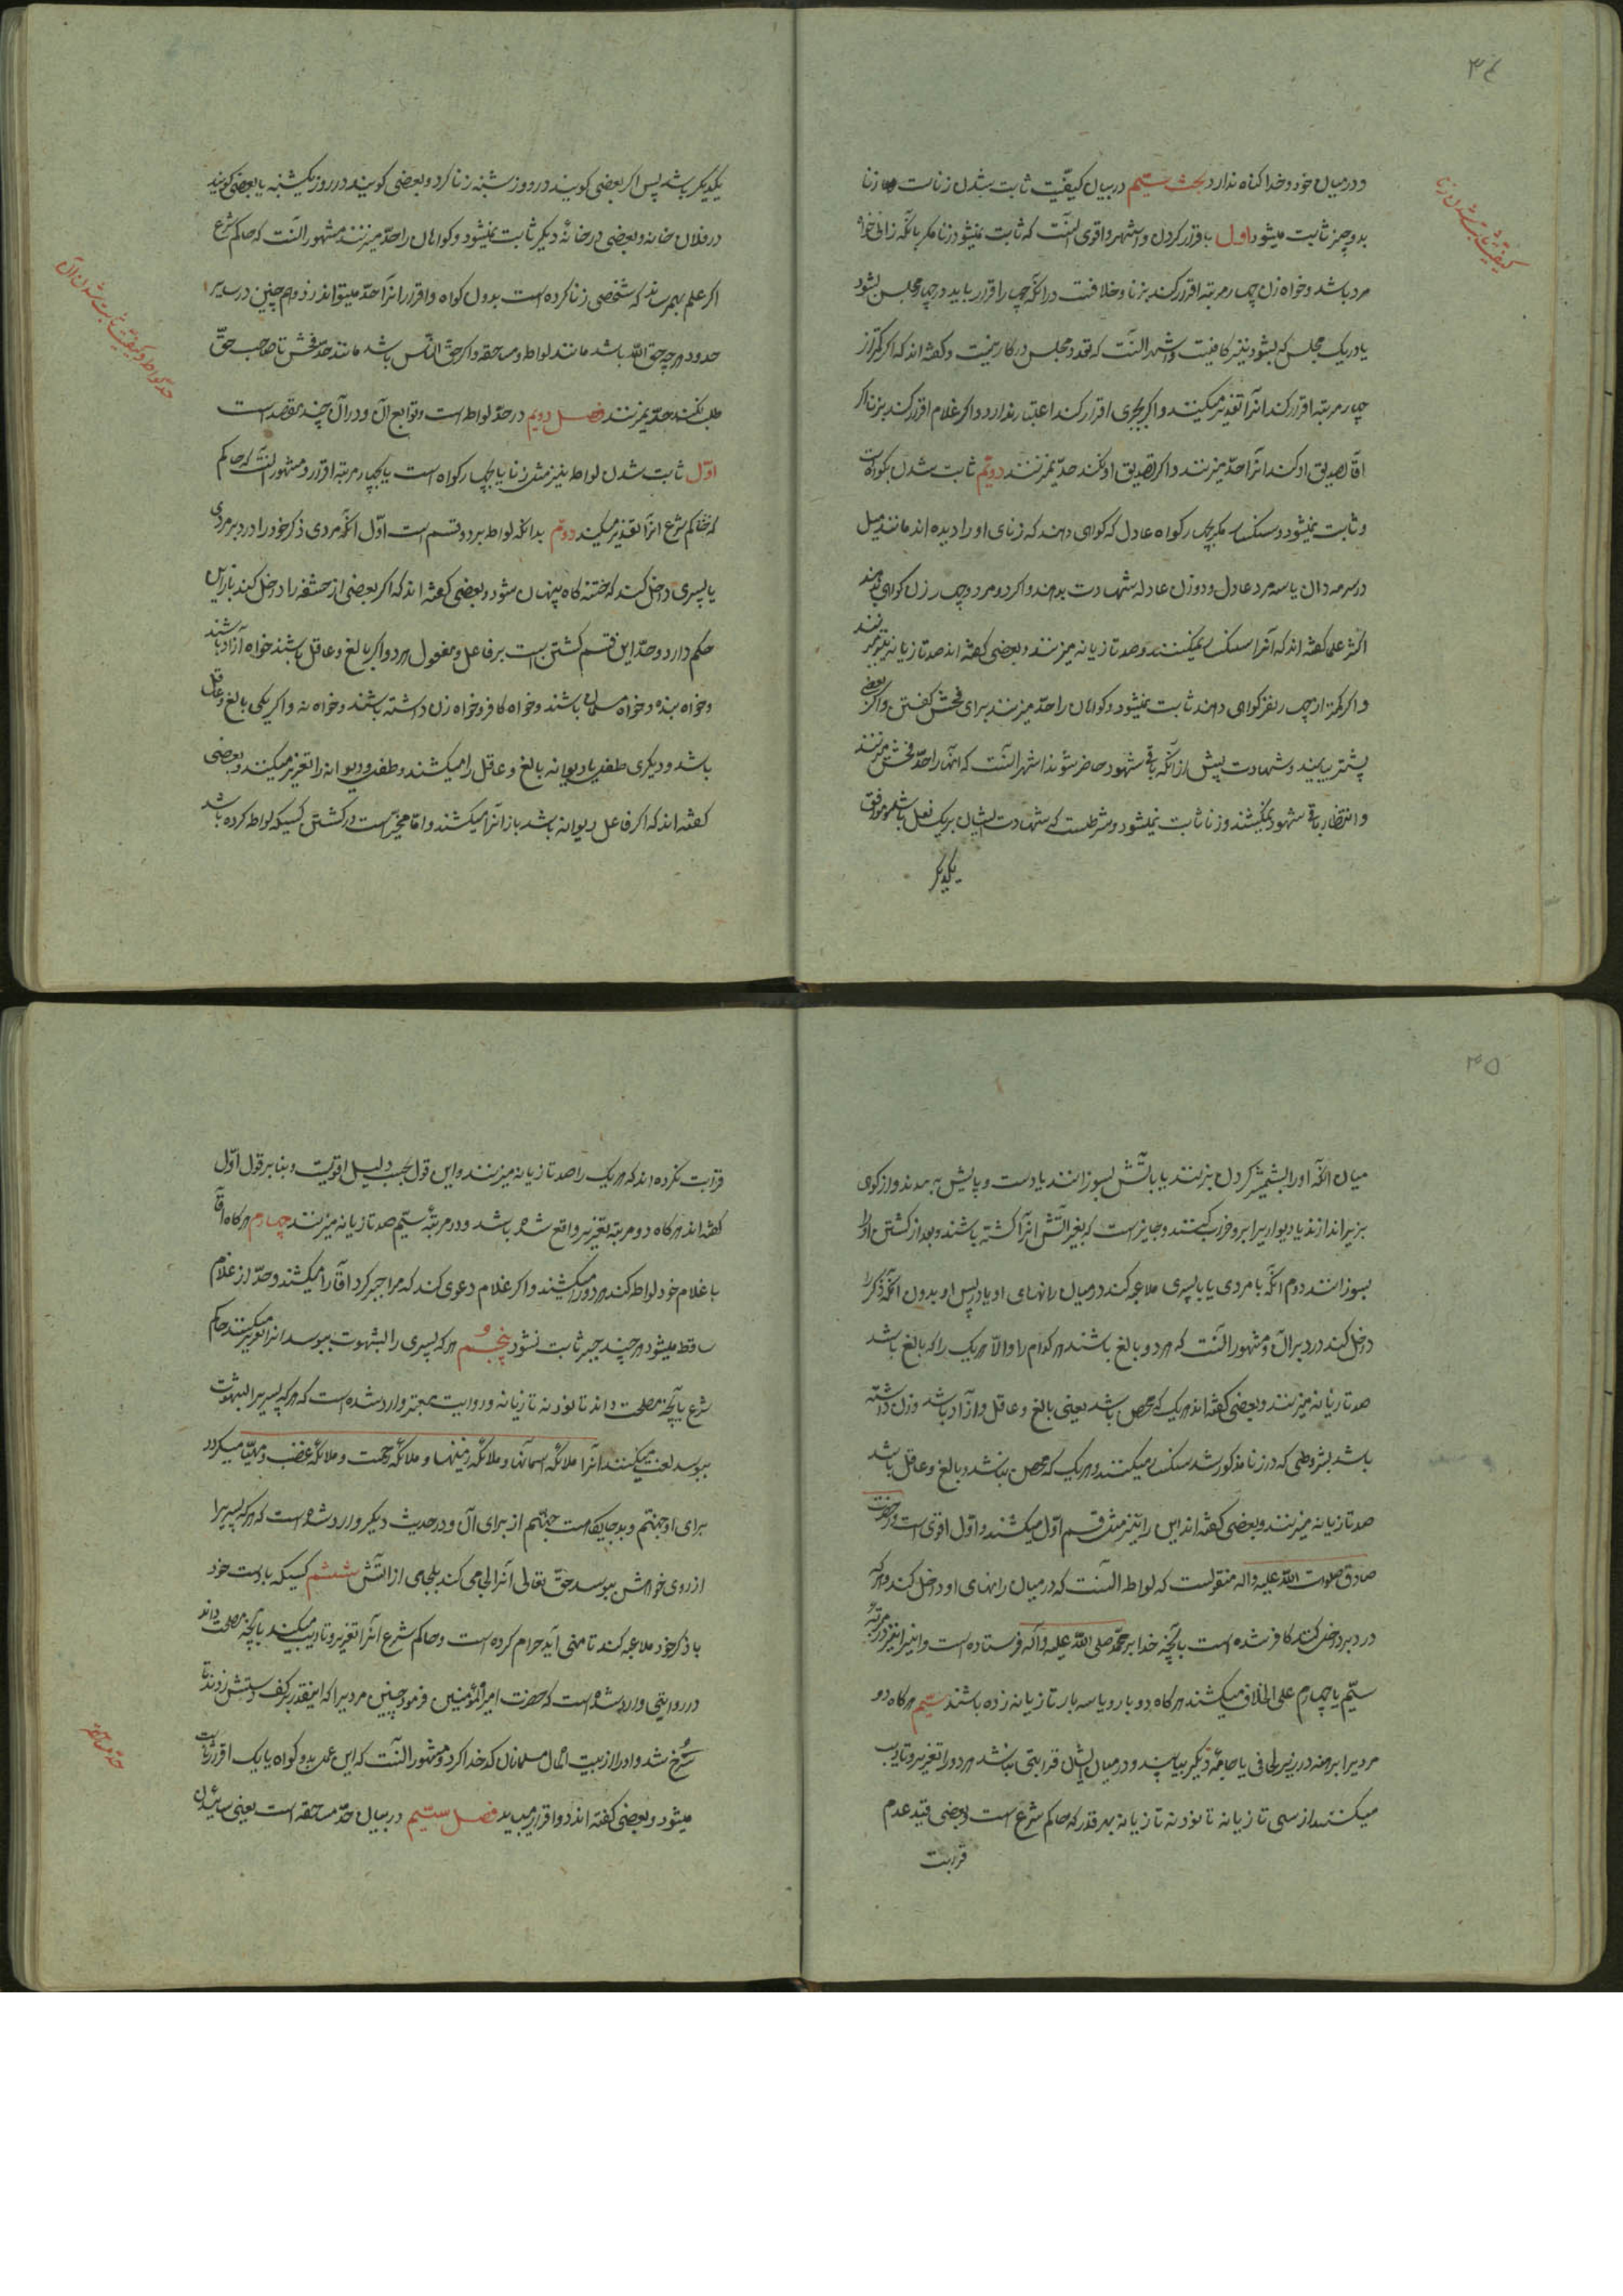 ۳۴
و در میان خود و خدا کناه ندارد بحث سیّم در بیان کیفیّت ثابت شدن زناست زنا
بدو چیز ثابت میشود اول باقرار کردن و اشهر و اقوی آنست که ثابت نمیشود زنا مکر بآنکه زانی خواه
مرد باشد و خواه زن چهار مرتبه اقرار کند بزنا و خلافست در آنکه چهار اقرار باید در چهار مجلس بشود
یا در یک مجلس که بشود نیز کافیست و اشهر آنست که تعدد مجلس در کار نیست و کفته اند که اکر کمتر از
چهار مرتبه اقرار کند انرا تعزیر میکنند و اکر بجبری اقرار کند اعتبار ندارد و اکر غلام اقرار کند بزنا اکر
اقا تصدیق او کند انرا حدّ میزنند و اکر تصدیق او نکند حدّ نمیزنند دویّم ثابت شدن بکواه است
و ثابت نمیشود و سنکسار مکر بچهار کواه عادل که کواهی دهند که زنای او را دیده اند مانند میل
در سرمه دان یا سه مرد عادل و دو زن عادله شهادت بدهند و اکر دو مرد و چهار زن کواهی بدهند
اکثر علما کفته اند که آنرا سنکسار نمیکنند و صد تازیانه میزنند و بعضی کفته اند صد تازیانه نیز نمیزنند
و اکر کمتر از چهار نفر کواهی دهند ثابت نمیشود و کواهان را حدّ میزنند برای فحش کفتن و اکر بعضی
پیشتر بیایند و شهادت پیش از آنکه باقی شهود حاضر شوند اشهر آنست که آنها را حدّ فحش میزنند
و انتظار باقی شهود نمیکشند و زنا ثابت نمیشود و شرطست که شهادت ایشان بر یک فعل باشد و موافق
یکدیکر
کیفیّت ثابت شدن زنا
یکدیکر باشد پس اکر بعضی کویند در روز شنبه زنا کرد و بعضی کویند در روز یکشنبه یا بعضی کویند
در فلان خانه و بعضی در خانهٔ دیکر ثابت نمیشود و کواهان را حدّ میزنند مشهور آنست که حاکم شرع
اکر علم بهمرساند که شخصی زنا کرده است بدون کواه و اقرار انرا حدّ میتواند زد و هم چنین در سایر
حدود هر چه حق الله باشد مانند لواط و مساحقه و اکر حق الناس باشد مانند حد فحش تا صاحب حقّ
طلب نکند حدّ نمیزنند فصل دویم در حدّ لواط است و توابع آن و در آن چند مقصد است
اوّل ثابت شدن لواط نیز مثل زنا یا بچهار کواه است یا بچهار مرتبه اقرار و مشهور آنست که حاکم
که حاکم شرع انرا تعزیر میکند دویّم بدانکه لواط بر دو قسم است اوّل انکه مردی ذکر خود را در دبر مردی
یا پسری داخل کند که ختنه کاه پنهان شود و بعضی کفته اند که اکر بعضی از حشفه را داخل کند باز این
حکم دارد و حدّ این قسم کشتن است بر فاعل و مفعول هر دو اکر بالغ و عاقل باشند خواه آزاد باشند
و خواه بنده و خواه مسلمان باشند و خواه کافر و خواه زن داشته باشند و خواه نه و اکر یکی بالغ و عاقل
باشد و دیکری طفل یا دیوانه بالغ و عاقل را میکشند و طفل و دیوانه را تعزیر میکنند و بعضی
کفته اند که اکر فاعل دیوانه باشد باز انرا میکشند و امام مخیّر است در کشتن کسیکه لواط کرده باشد
حدّ لواط و کیفیّت ثابت شدن آن
۳۵
میان انکه او را بشمشیر کردن بزنند یا بآتش بسوزانند یا دست و پایش به بندند و از کوهی
بزیر اندازند یا دیواریرا بر او خراب کنند و جایز است که بغیر آتش انرا کشته باشند و بعد از کشتن او را
بسوزانند دوم انکه با مردی یا با پسری ملاعبه کند در میان رانهای او یا در پس او بدون انکه ذکر را
داخل کند در دبر آن و مشهور آنست که هر دو بالغ باشند هر کدام را و الا هر یک را که بالغ باشد
صد تازیانه میزنند و بعضی کفته اند هر یک که محصن باشد یعنی بالغ و عاقل و آزاد باشد و زن داشته
باشد بشروطی که در زنا مذکور شد سنکسار میکنند و هر یک که محصن نباشد و بالغ و عاقل باشد
صد تازیانه میزنند و بعضی کفته اند این را نیز مثل قسم اوّل میکشند و اوّل اقوی است و از حضرت
صادق صلوات الله علیه و اله منقولست که لواط آنست که در میان رانهای او داخل کند و هر که
در دبر داخل کند کافر شده است بآنچه خدا بر محمّد صلی الله علیه و آله فرستاده است و اینرا نیز در مرتبهٔ
سیّم یا چهارم علی الخلاف میکشند هر کاه دو بار و یا سه بار تازیانه زده باشند سیّم هر کاه دو
مردیرا برهنه در زیر لحافی یا جامهٔ دیکر بیابند و در میان ایشان قرابتی نباشد هر دو را تعزیر و تادیب
میکنند از سی تازیانه تا نود نه تازیانه بهر قدر که حاکم شرع است و بعضی قید عدم
قرابت
قرابت نکرده اند که هر یک را صد تازیانه میزنند و این قول بحسب دلیل اقویست و بنا بر قول اوّل
کفته اند هر کاه دو مرتبه تعزیر واقع شده باشد و در مرتبهٔ سیّم صد تازیانه میزنند چهارم هر کاه اقا
با غلام خود لواط کند هر دو را میکشند و اکر غلام دعوی کند که مرا جبر کرد اقا را میکشند و حدّ از غلام
ساقط میشود هر چند جبر ثابت نشود پنجم هر که پسری را بشهوت ببوسد انرا تعزیر میکند حاکم
شرع بآنچه مصلحت داند تا نود نه تازیانه و روایت معتبر وارد شده است که هر که پسریرا بشهوت
ببوسد لعنت میکنند آنرا ملائکه اسمانها و ملائکه زمینها و ملائکه رحمت و ملائکه غضب و مهیّا میکردد
برای او جهنّم و بد جایکاهست جهنّم از برای آن و در حدیث دیکر وارد شده است که هر که پسریرا
از روی خواهش ببوسد حقّ تعالی انرا لجامی کند بلجامی از اتش ششم کسیکه با دست خود
با ذکر خود ملاعبه کند تا منی آید حرام کرده است و حاکم شرع آنرا تعزیر و تادیب میکند بآنچه مصلحت داند
در روایتی وارد شده است که حضرت امیر المؤمنین فرمود چنین مردیرا که اینقدر بر کف دستش زدند تا
سُرخ شد و او را از بیت المال مسلمانان کدخدا کرد و مشهور آنست که این عمل بدو کواه یا یک اقرار ثابت
میشود و بعضی کفته اند دو اقرار میباید فصل سیّم در بیان حدّ مساحقه است یعنی سائیدن
حدّ مساحقه